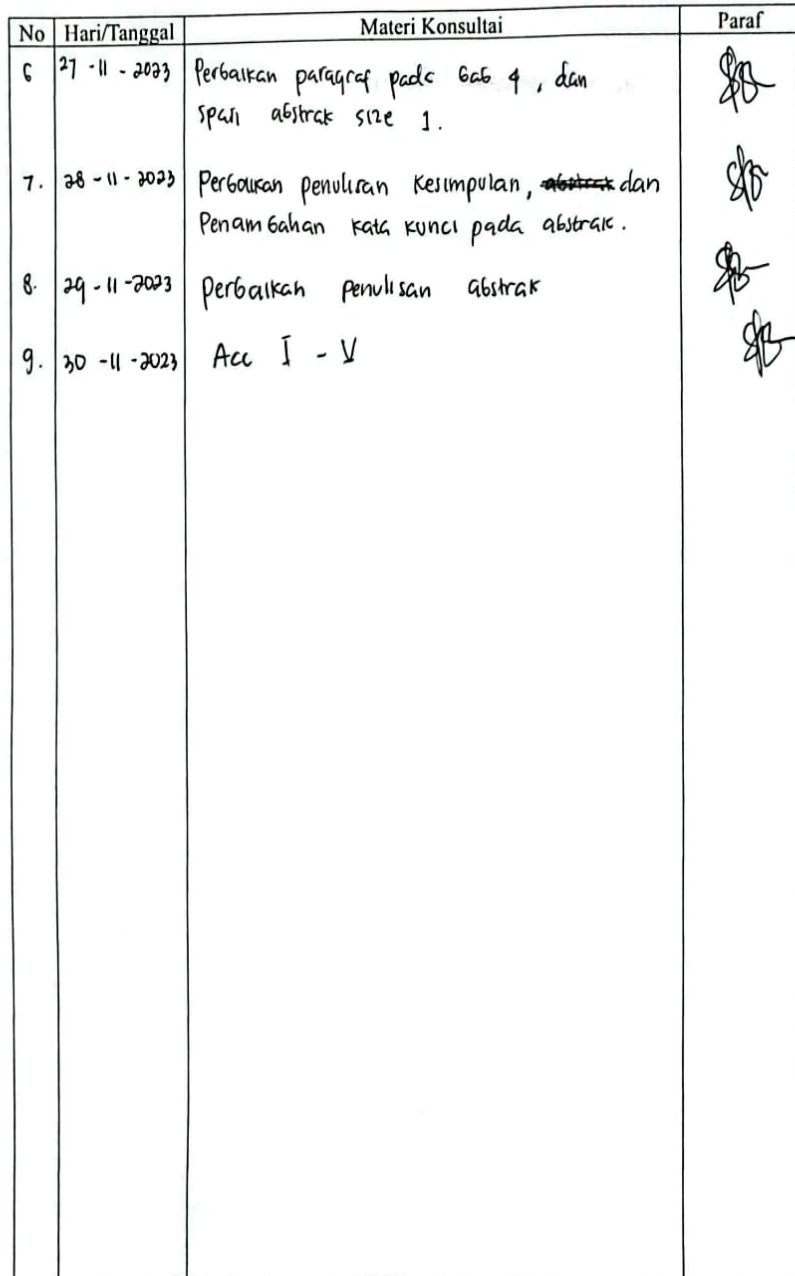 No Hari/Tanggal Materi Konsultai Paraf
6 27 - 11 - 2023 Perbaikan paragraf pada bab 4, dan
spasi abstrak size 1.
7. 28 - 11 - 2023 Perbaikan penulisan kesimpulan, abstrak dan
Penambahan kata kunci pada abstrak.
8. 29 - 11 - 2023 perbaikan penulisan abstrak
9. 30 - 11 - 2023 Acc I - V